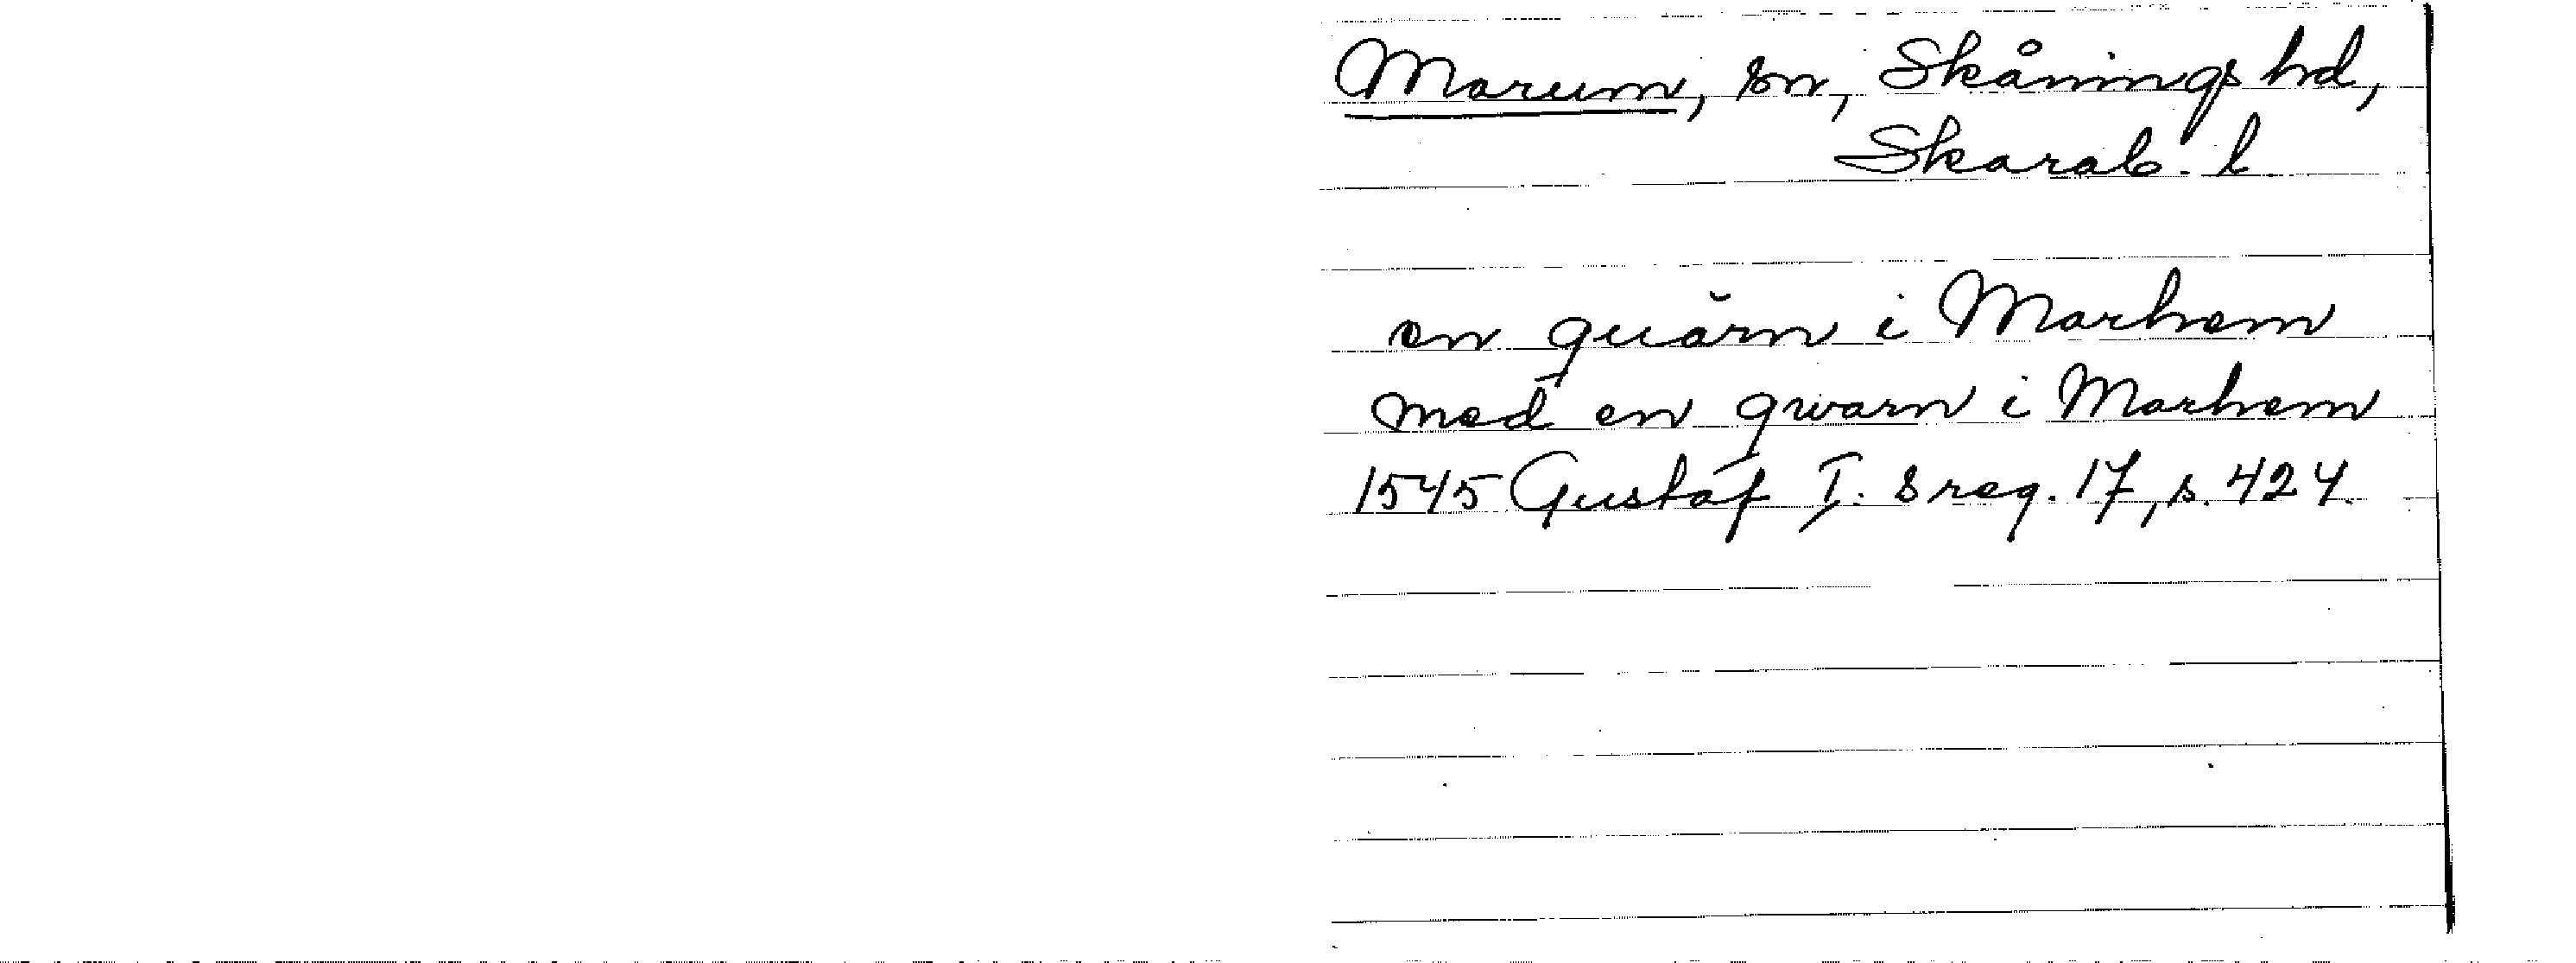 Marum, sn, Skånings hd,
Skarab. l.
en quărn i Marhem
med en qwarn i Marhem
1545 Gustaf I: s reg. 17, s. 424.